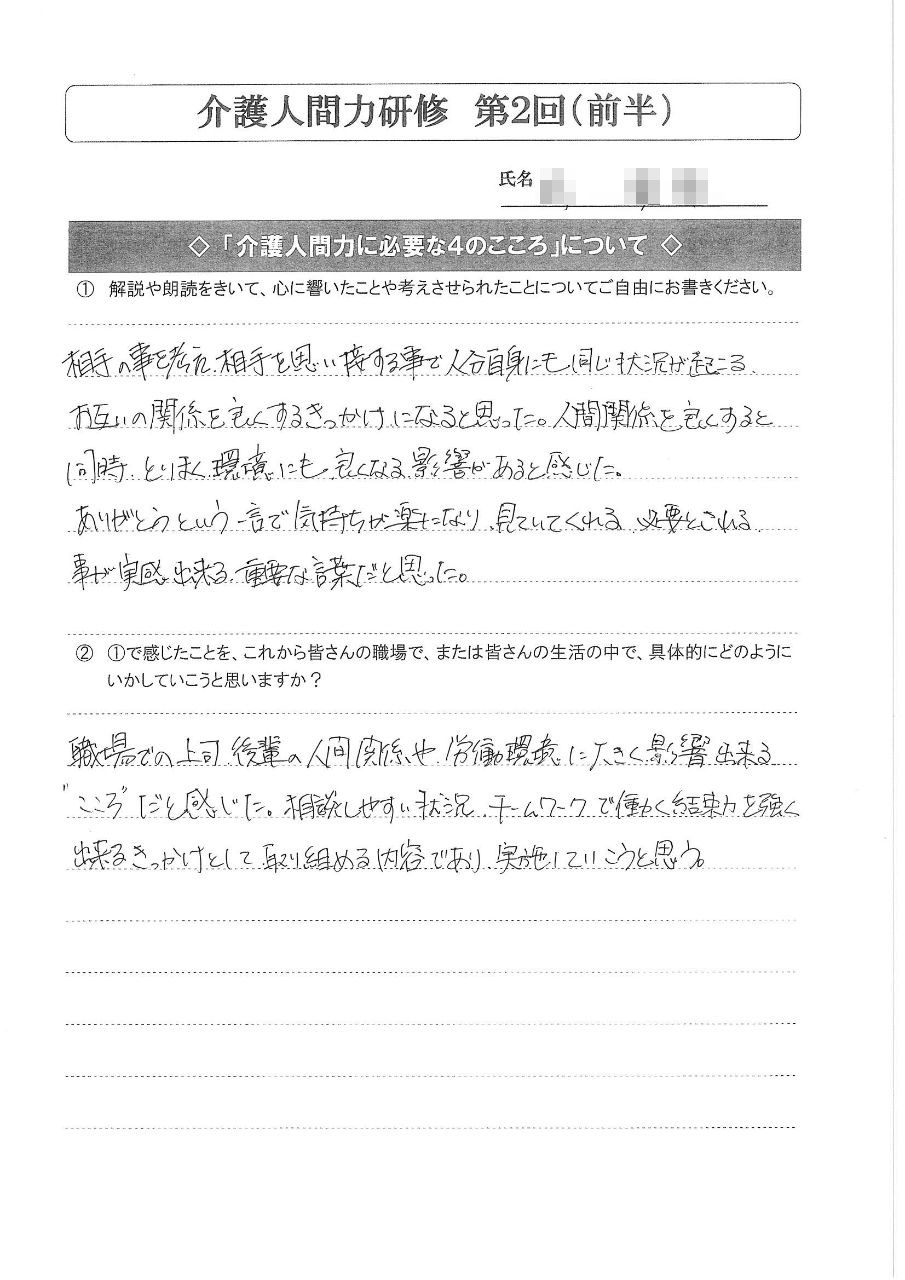 介護人間力研修 第2回(前半)
氏名
◇「介護人間力に必要な4のこころ」について ◇
① 解説や朗読をきいて、心に響いたことや考えさせられたことについてご自由にお書きください。
相手の事を考え、相手を思い接する事で自分自身にも同じ状況が起こる、
お互いの関係を良くするきっかけになると思った。人間関係を良くすると
同時、とりまく環境にも良くなる影響があると感じた。
ありがとうという一言で気持ちが楽になり、見ていてくれる、必要とされる
事が実感出来る、重要な言葉だと思った。
② ①で感じたことを、これから皆さんの職場で、または皆さんの生活の中で、具体的にどのように
いかしていこうと思いますか？
職場での上司、後輩の人間関係や、労働環境に大きく影響出来る
"こころ"だと感じた。相談しやすい状況、チームワークで働く結束力を強く
出来るきっかけとして取り組める内容であり、実施していこうと思う。